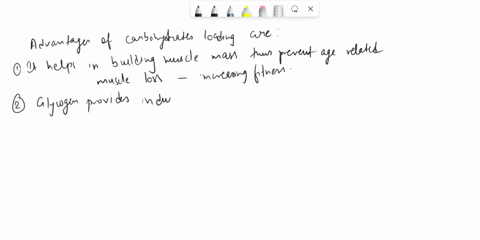 Advantages of carbohydrates loading are :
① It helps in building muscle mass thus prevent age related
muscle loss — increasing fitness.
② Glycogen provides indu